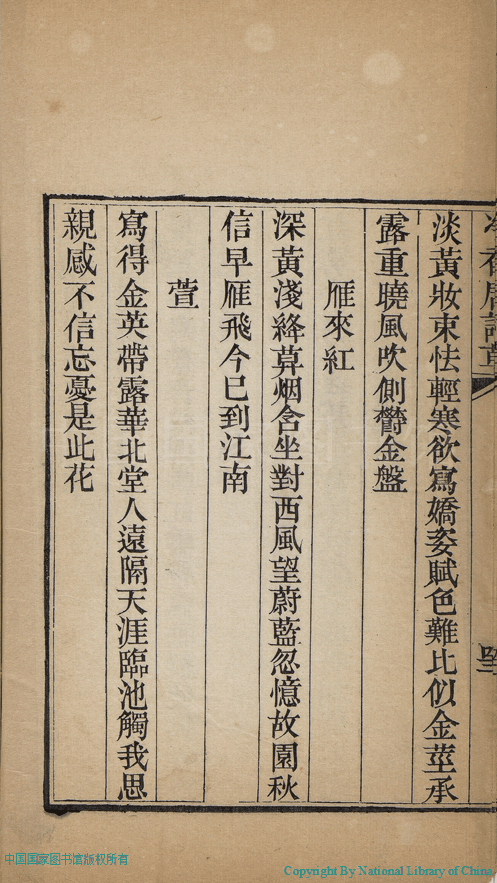 淡黃妝束怯輕寒欲寫嬌姿賦色難比似金莖承
露重曉風吹側欝金盤
雁來紅
深黃淺絳算烟含坐對西風望蔚藍忽憶故園秋
信早雁飛今已到江南
萱
寫得金英帶露華北堂人遠隔天涯臨池觸我思
親感不信忘憂是此花
中国国家图书馆版权所有
Copyright By National Library of China